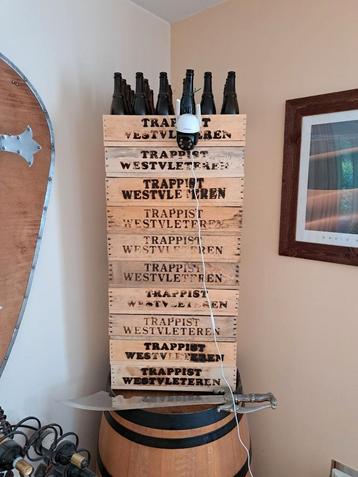 TRAPPIST
WESTVLETEREN
TRAPPIST
WESTVLETEREN
TRAPPIST
WESTVLETEREN
TRAPPIST
WESTVLETEREN
TRAPPIST
WESTVLETEREN
TRAPPIST
WESTVLETEREN
TRAPPIST
WESTVLETEREN
TRAPPIST
WESTVLETEREN
TRAPPIST
WESTVLETEREN
TRAPPIST
WESTVLETEREN